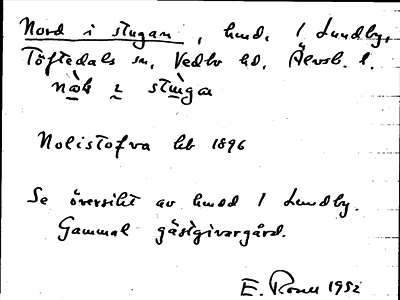 Nord i stugan, hmd. 1 Lundby,
Töftedals sn, Vedbo hd, Älvsb. l.
Nolistofva hb 1896
Se översikt av hmd 1 Lundby.
Gammal gästgivargård.
E. Rosell 1952